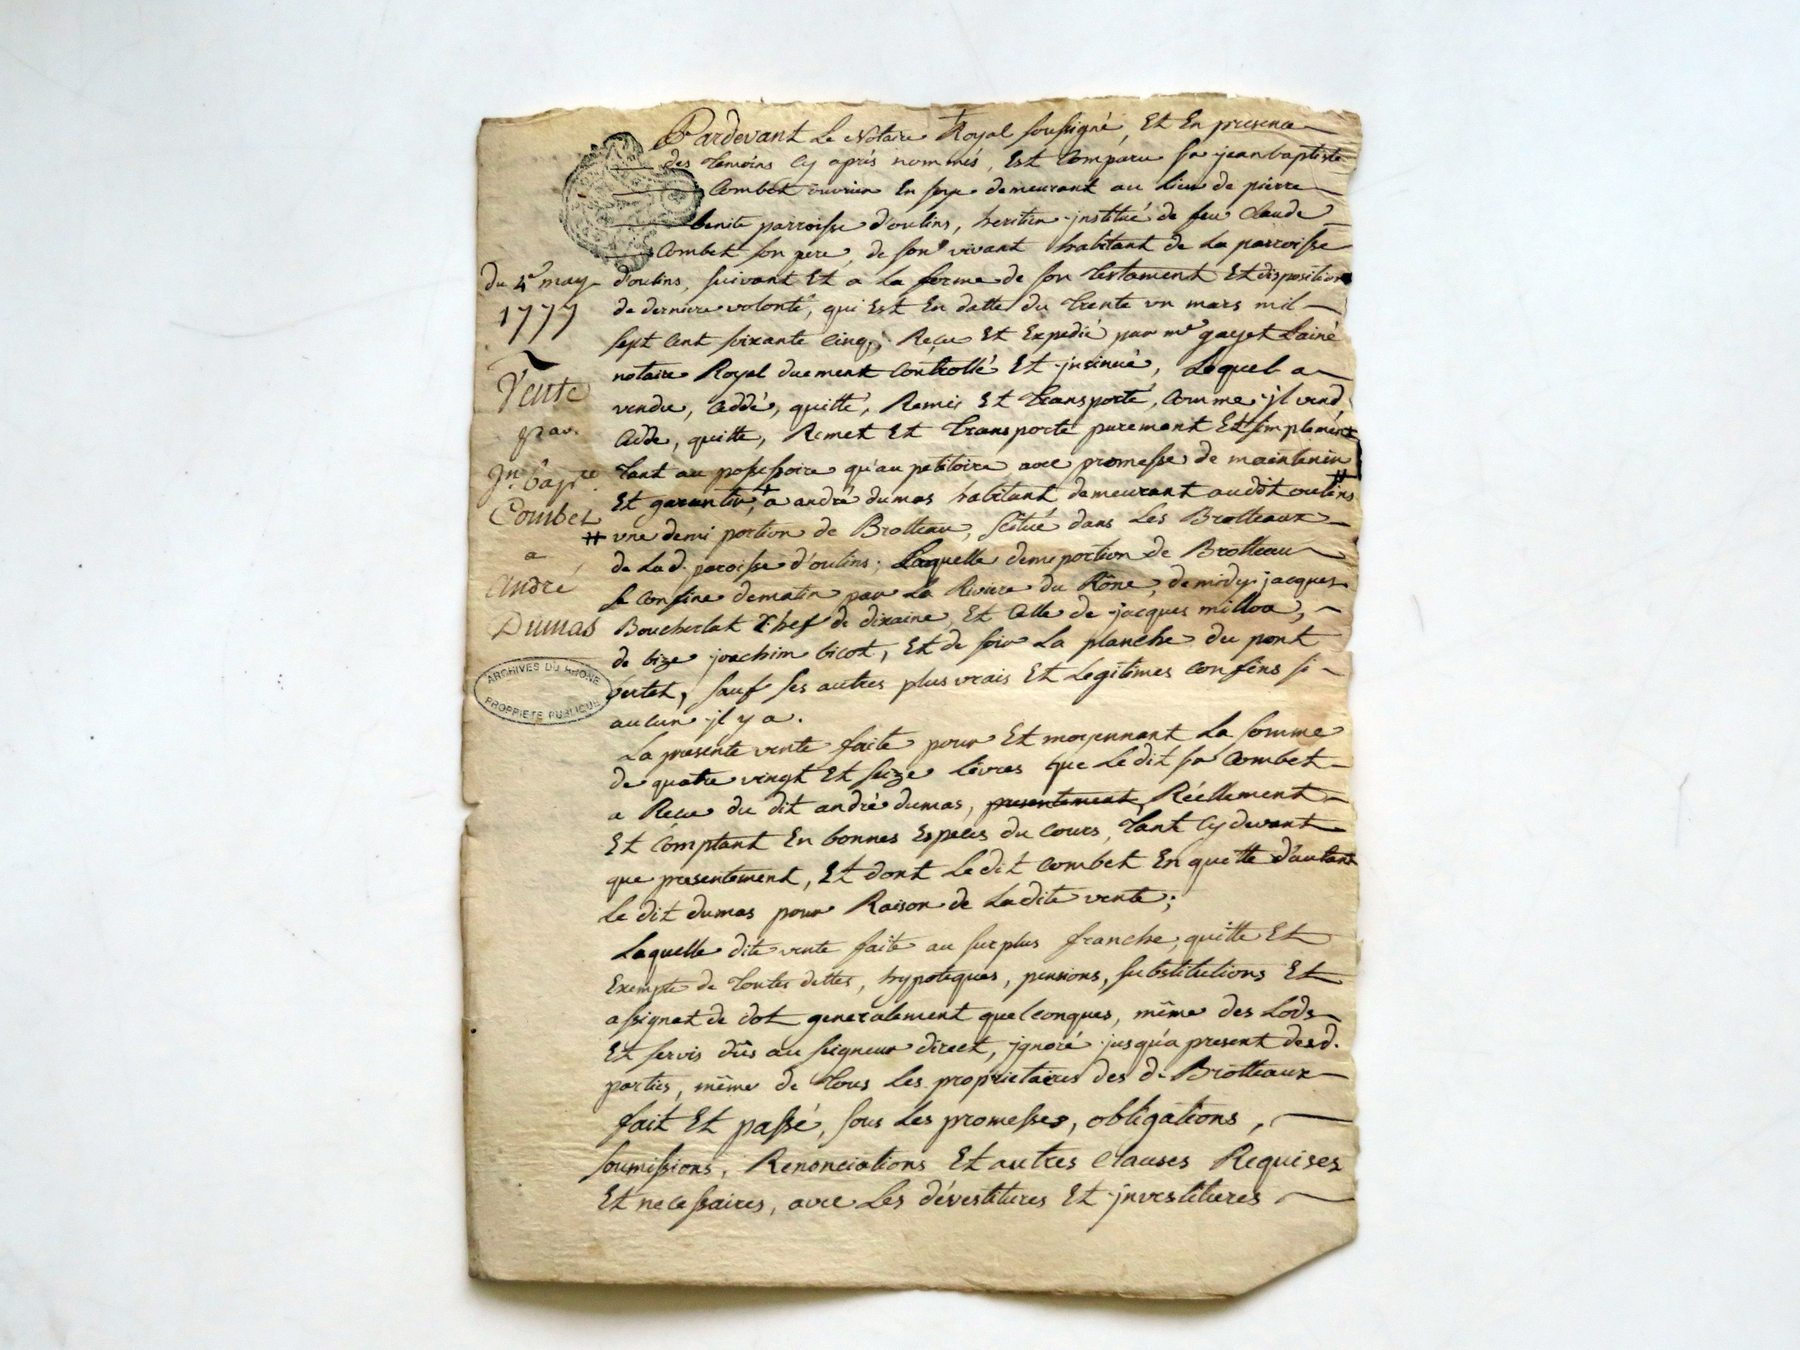 Pardevant Le Notaire Royal soussigné, Et En presence
des temoins Cy aprés nommés, Est Comparu sr jean baptiste
Combet ouvrier En soye demeurant au Lieu de pierre
benite parroisse d'oulins, heritier institué de feu Claude
Combet son pere, de son vivant habitant de La parroisse
d'oulins, suivant Et a La forme de son testament Et disposition
de derniere volonté, qui Est En datte du trente un mars mil
sept cent soixante cinq, Recu Et Expedié par me gayet L'ainé
notaire Royal duement Controllé Et insinué, Lequel a
vendu, Ceddé, quitté, Remis Et transporté, Comme il vend
Cedde, quitte, Remet Et transporte purement Et simplement
tant au possessoire qu'au petitoire avec promesse de maintenir
Et garantir, a andré dumas habitant demeurant audit oulins
une demi portion de Brotteau, scitué dans Les Brotteaux
de Lad. paroisse d'oulins; Laquelle demi portion de Brotteau
se confine de matin par La Riviere du Rône, de midy jacques
Boucherlat Chef de dixaine, Et Celle de jacques millon,
de bize joachim bicot, Et de soir La planche du pont
vertet, sauf ses autres plus vrais Et Legitimes confins si
aucun il y a.
La presente vente faite pour Et moyennant La somme
de quatre vingt Et seize Livres que Ledit sr Combet
a Recu du dit andré dumas, presentement Réellement
Et Comptant En bonnes Especes du Cours, tant Cy devant
que presentement, Et dont Ledit Combet En quette d'autant
Le dit dumas pour Raison de Ladite vente;
Laquelle dite vente faite au surplus franche, quitte Et
Exempte de toutes dettes, hypoteques, pensions, substitutions Et
assignat de dot generalement quelconques, même des Lods
Et servis dûs au seigneur direct, ignoré jusqu'a present desd.
parties, même de tous Les proprietaires des d. Brotteaux
fait Et passé, sous Les promesses, obligations,
soumissions, Renonciations Et autres Clauses Requises
Et necessaires, avec Les dévestitures Et investitures
du 4e may
1777
Vente
par
Jn bapte
Combet
a
andré
Dumas
ARCHIVES DU RHONE
PROPRIETE PUBLIQUE